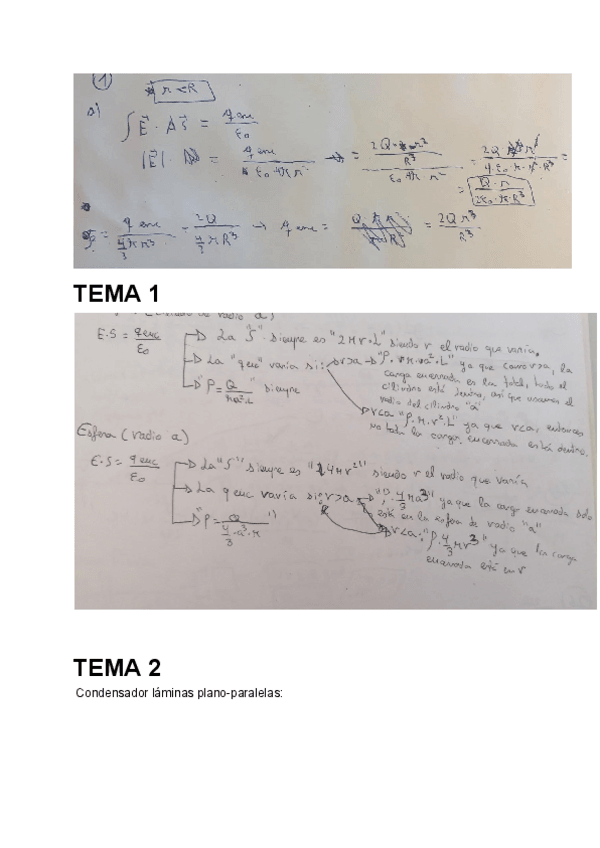 1
r < R
a)
∫ E · ΔS = q enc / ε₀
|E| · = q enc / ε₀ 4π r² → = 2Q r³ / R³ / ε₀ 4π r² = 2Q r³ / 4 ε₀ π r² R³ =
= Q · r / 2ε₀ · π · R³
ρ = q enc / 4/3 π r³ = 2Q / 4/3 π R³ → q enc = = 2Q r³ / R³
TEMA 1
de radio a)
E·S = qenc / ε₀
La "S" siempre es "2πr·L" siendo r el radio que varía.
La "qenc" varía si: r>a → "ρ·π·a²·L" ya que como r>a, la
carga encerrada es la total, todo el
cilindro está dentro, así que usamos el
radio del cilindro "a"
"ρ = Q / πa²·L" siempre
r<a "ρ·π·r²·L" ya que r<a, entonces
no toda la carga encerrada está dentro.
Esfera (radio a)
E·S = qenc / ε₀
La "S" siempre es "4πr²" siendo r el radio que varía
La qenc varía si r>a → "ρ·4/3 πa³" ya que la carga encerrada solo
está en la esfera de radio "a"
"ρ = Q / 4/3·a³·π"
r<a: "ρ·4/3 πr³" ya que la carga
encerrada está en r
TEMA 2
Condensador láminas plano-paralelas: